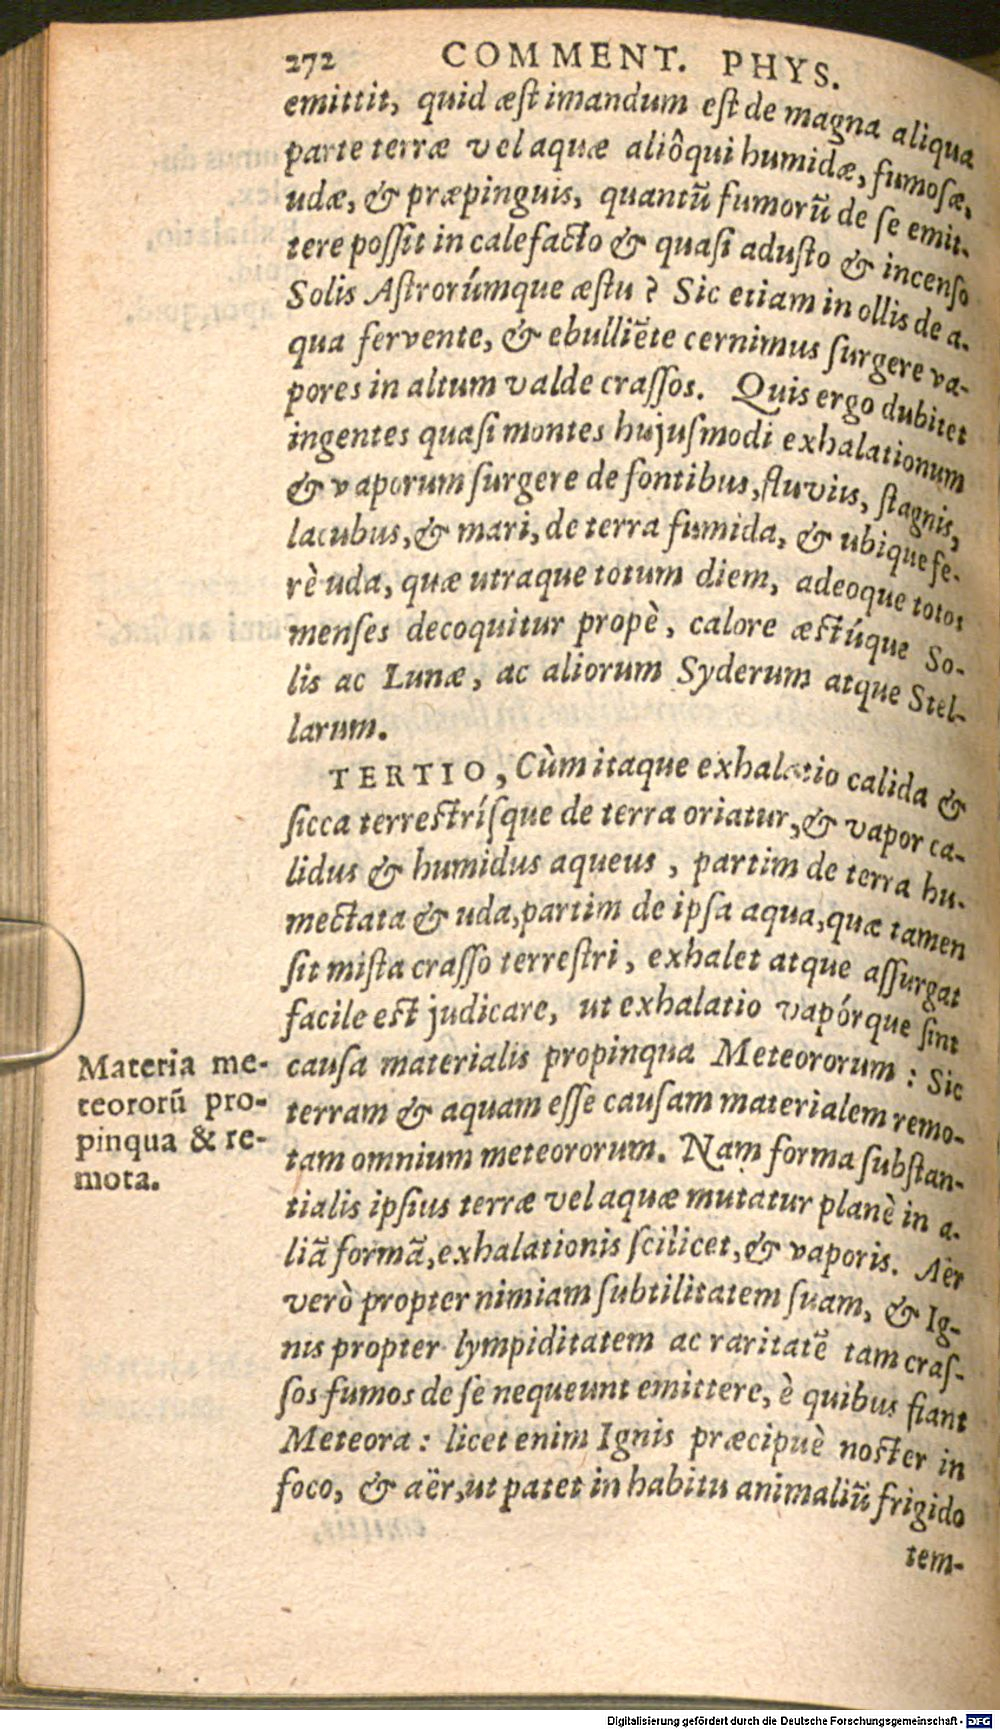 272 COMMENT. PHYS.
emittit, quid æstimandum est de magna aliqua
parte terræ vel aquæ aliôqui humidæ, fumosæ,
udæ, & præpinguis, quantũ fumorũ de se emit-
tere possit in calefacto & quasi adusto & incenso
Solis Astrorúmque æstu? Sic etiam in ollis de a-
qua fervente, & ebulliẽte cernimus surgere va-
pores in altum valde crassos. Quis ergo dubitet
ingentes quasi montes hujusmodi exhalationum
& vaporum surgere de fontibus, fluviis, stagnis,
lacubus, & mari, de terra fumida, & ubique fe-
rè uda, quæ utraque totum diem, adeoque totos
menses decoquitur propè, calore æstúque So-
lis ac Lunæ, ac aliorum Syderum atque Stel-
larum.
TERTIO, Cùm itaque exhalatio calida &
sicca terrestrísque de terra oriatur, & vapor ca-
lidus & humidus aqueus, partim de terra hu-
mectata & uda, partim de ipsa aqua, quæ tamen
sit mista crasso terrestri, exhalet atque assurgat
facile est judicare, ut exhalatio vapórque sint
causa materialis propinqua Meteororum: Sic
terram & aquam esse causam materialem remo-
tam omnium meteororum. Nam forma substan-
tialis ipsius terræ vel aquæ mutatur planè in a-
liã formã, exhalationis scilicet, & vaporis. Aër
verò propter nimiam subtilitatem suam, & Ig-
nis propter lympiditatem ac raritatẽ tam cras-
sos fumos de se nequeunt emittere, è quibus fiant
Meteora: licet enim Ignis præcipuè noster in
foco, & aër, ut patet in habitu animaliũ frigido
tem-
Materia me-
teororũ pro-
pinqua & re-
mota.
Digitalisierung gefördert durch die Deutsche Forschungsgemeinschaft - DFG